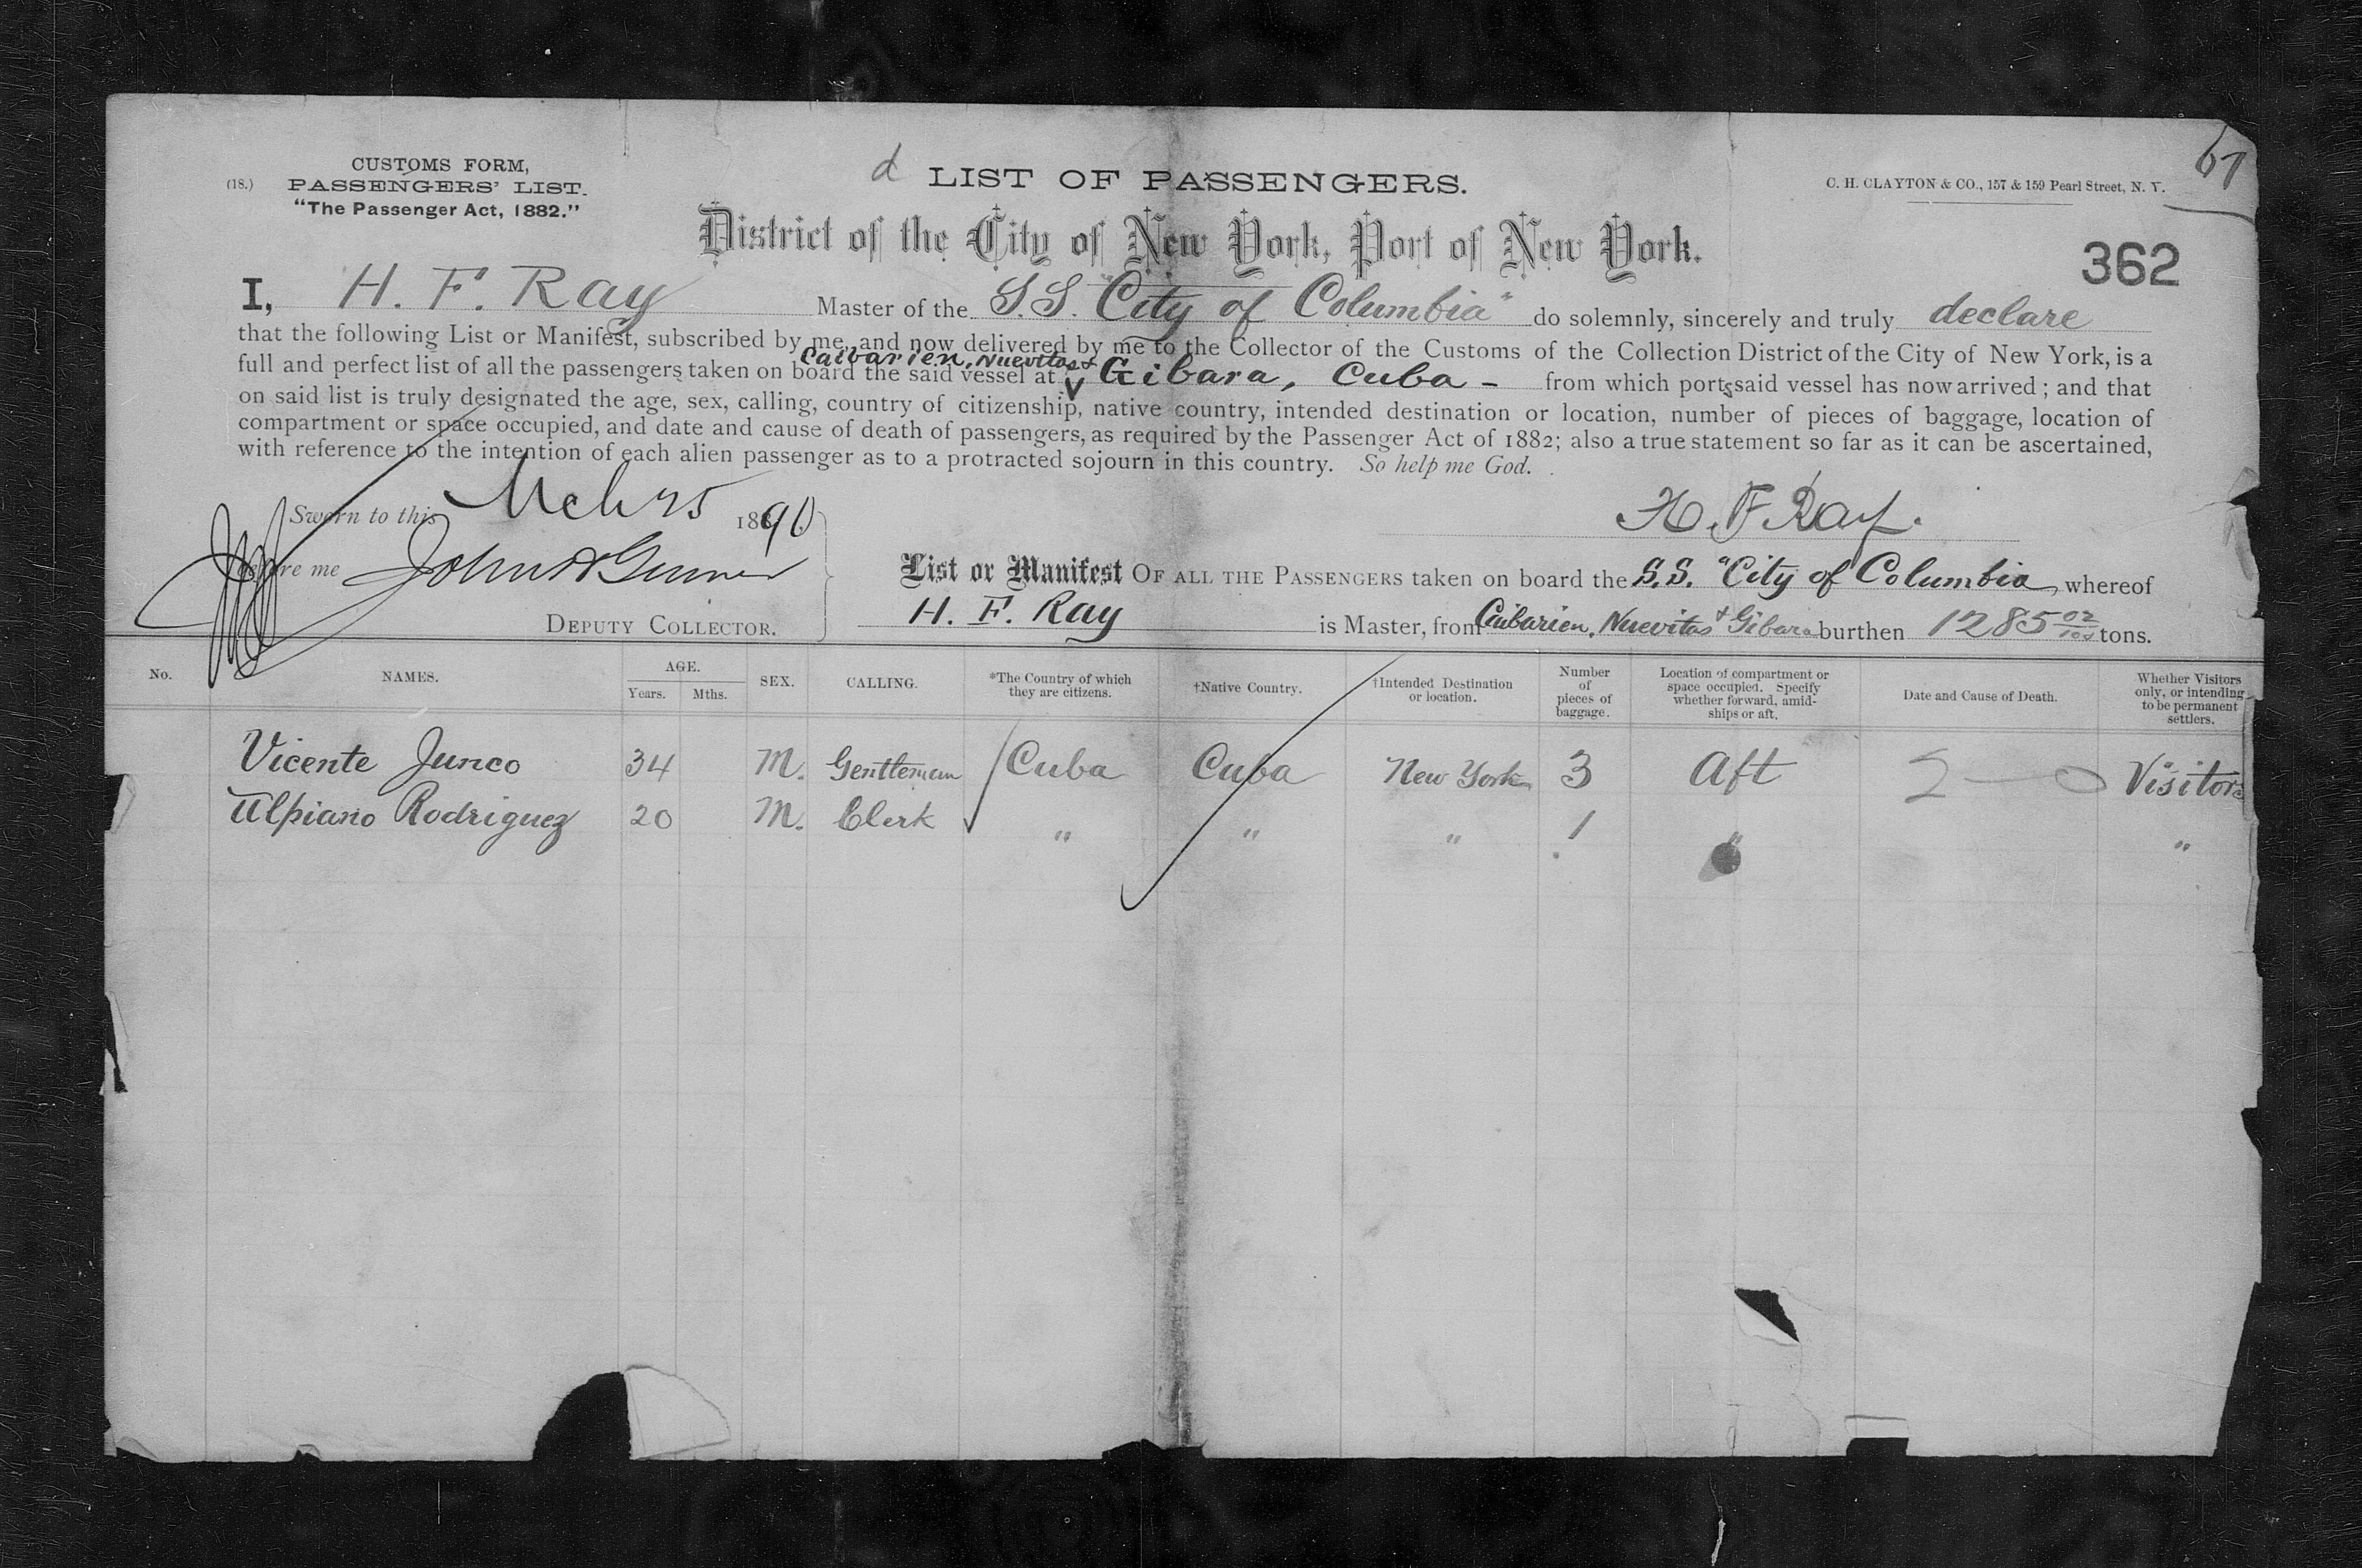 67
CUSTOMS FORM,
(18.) PASSENGERS' LIST.
"The Passenger Act, 1882."
d LIST OF PASSENGERS.
C. H. CLAYTON & CO., 157 & 159 Pearl Street, N. Y.
District of the City of New York, Port of New York.
362
I, H. F. Ray Master of the S.S. "City of Columbia" do solemnly, sincerely and truly declare
that the following List or Manifest, subscribed by me, and now delivered by me to the Collector of the Customs of the Collection District of the City of New York, is a
Caibarien, Nuevitas &
full and perfect list of all the passengers taken on board the said vessel at Gibara, Cuba - from which ports said vessel has now arrived; and that
on said list is truly designated the age, sex, calling, country of citizenship, native country, intended destination or location, number of pieces of baggage, location of
compartment or space occupied, and date and cause of death of passengers, as required by the Passenger Act of 1882; also a true statement so far as it can be ascertained,
with reference to the intention of each alien passenger as to a protracted sojourn in this country. So help me God.
Sworn to this Mch 25 1890
H. F. Ray.
before me John
DEPUTY COLLECTOR.
List or Manifest OF ALL THE PASSENGERS taken on board the S.S. "City of Columbia whereof
H. F. Ray is Master, from Caibarien, Nuevitas & Gibara burthen 1285 02/100 tons.
No. NAMES. AGE. Years. Mths. SEX. CALLING. *The Country of which they are citizens. †Native Country. †Intended Destination or location. Number of pieces of baggage. Location of compartment or space occupied. Specify whether forward, amid-ships or aft. Date and Cause of Death. Whether Visitors only, or intending to be permanent settlers.
Vicente Junco 34 M. Gentleman Cuba Cuba New York 3 Aft Visitors
Ulpiano Rodriguez 20 M. Clerk " " " 1 " "